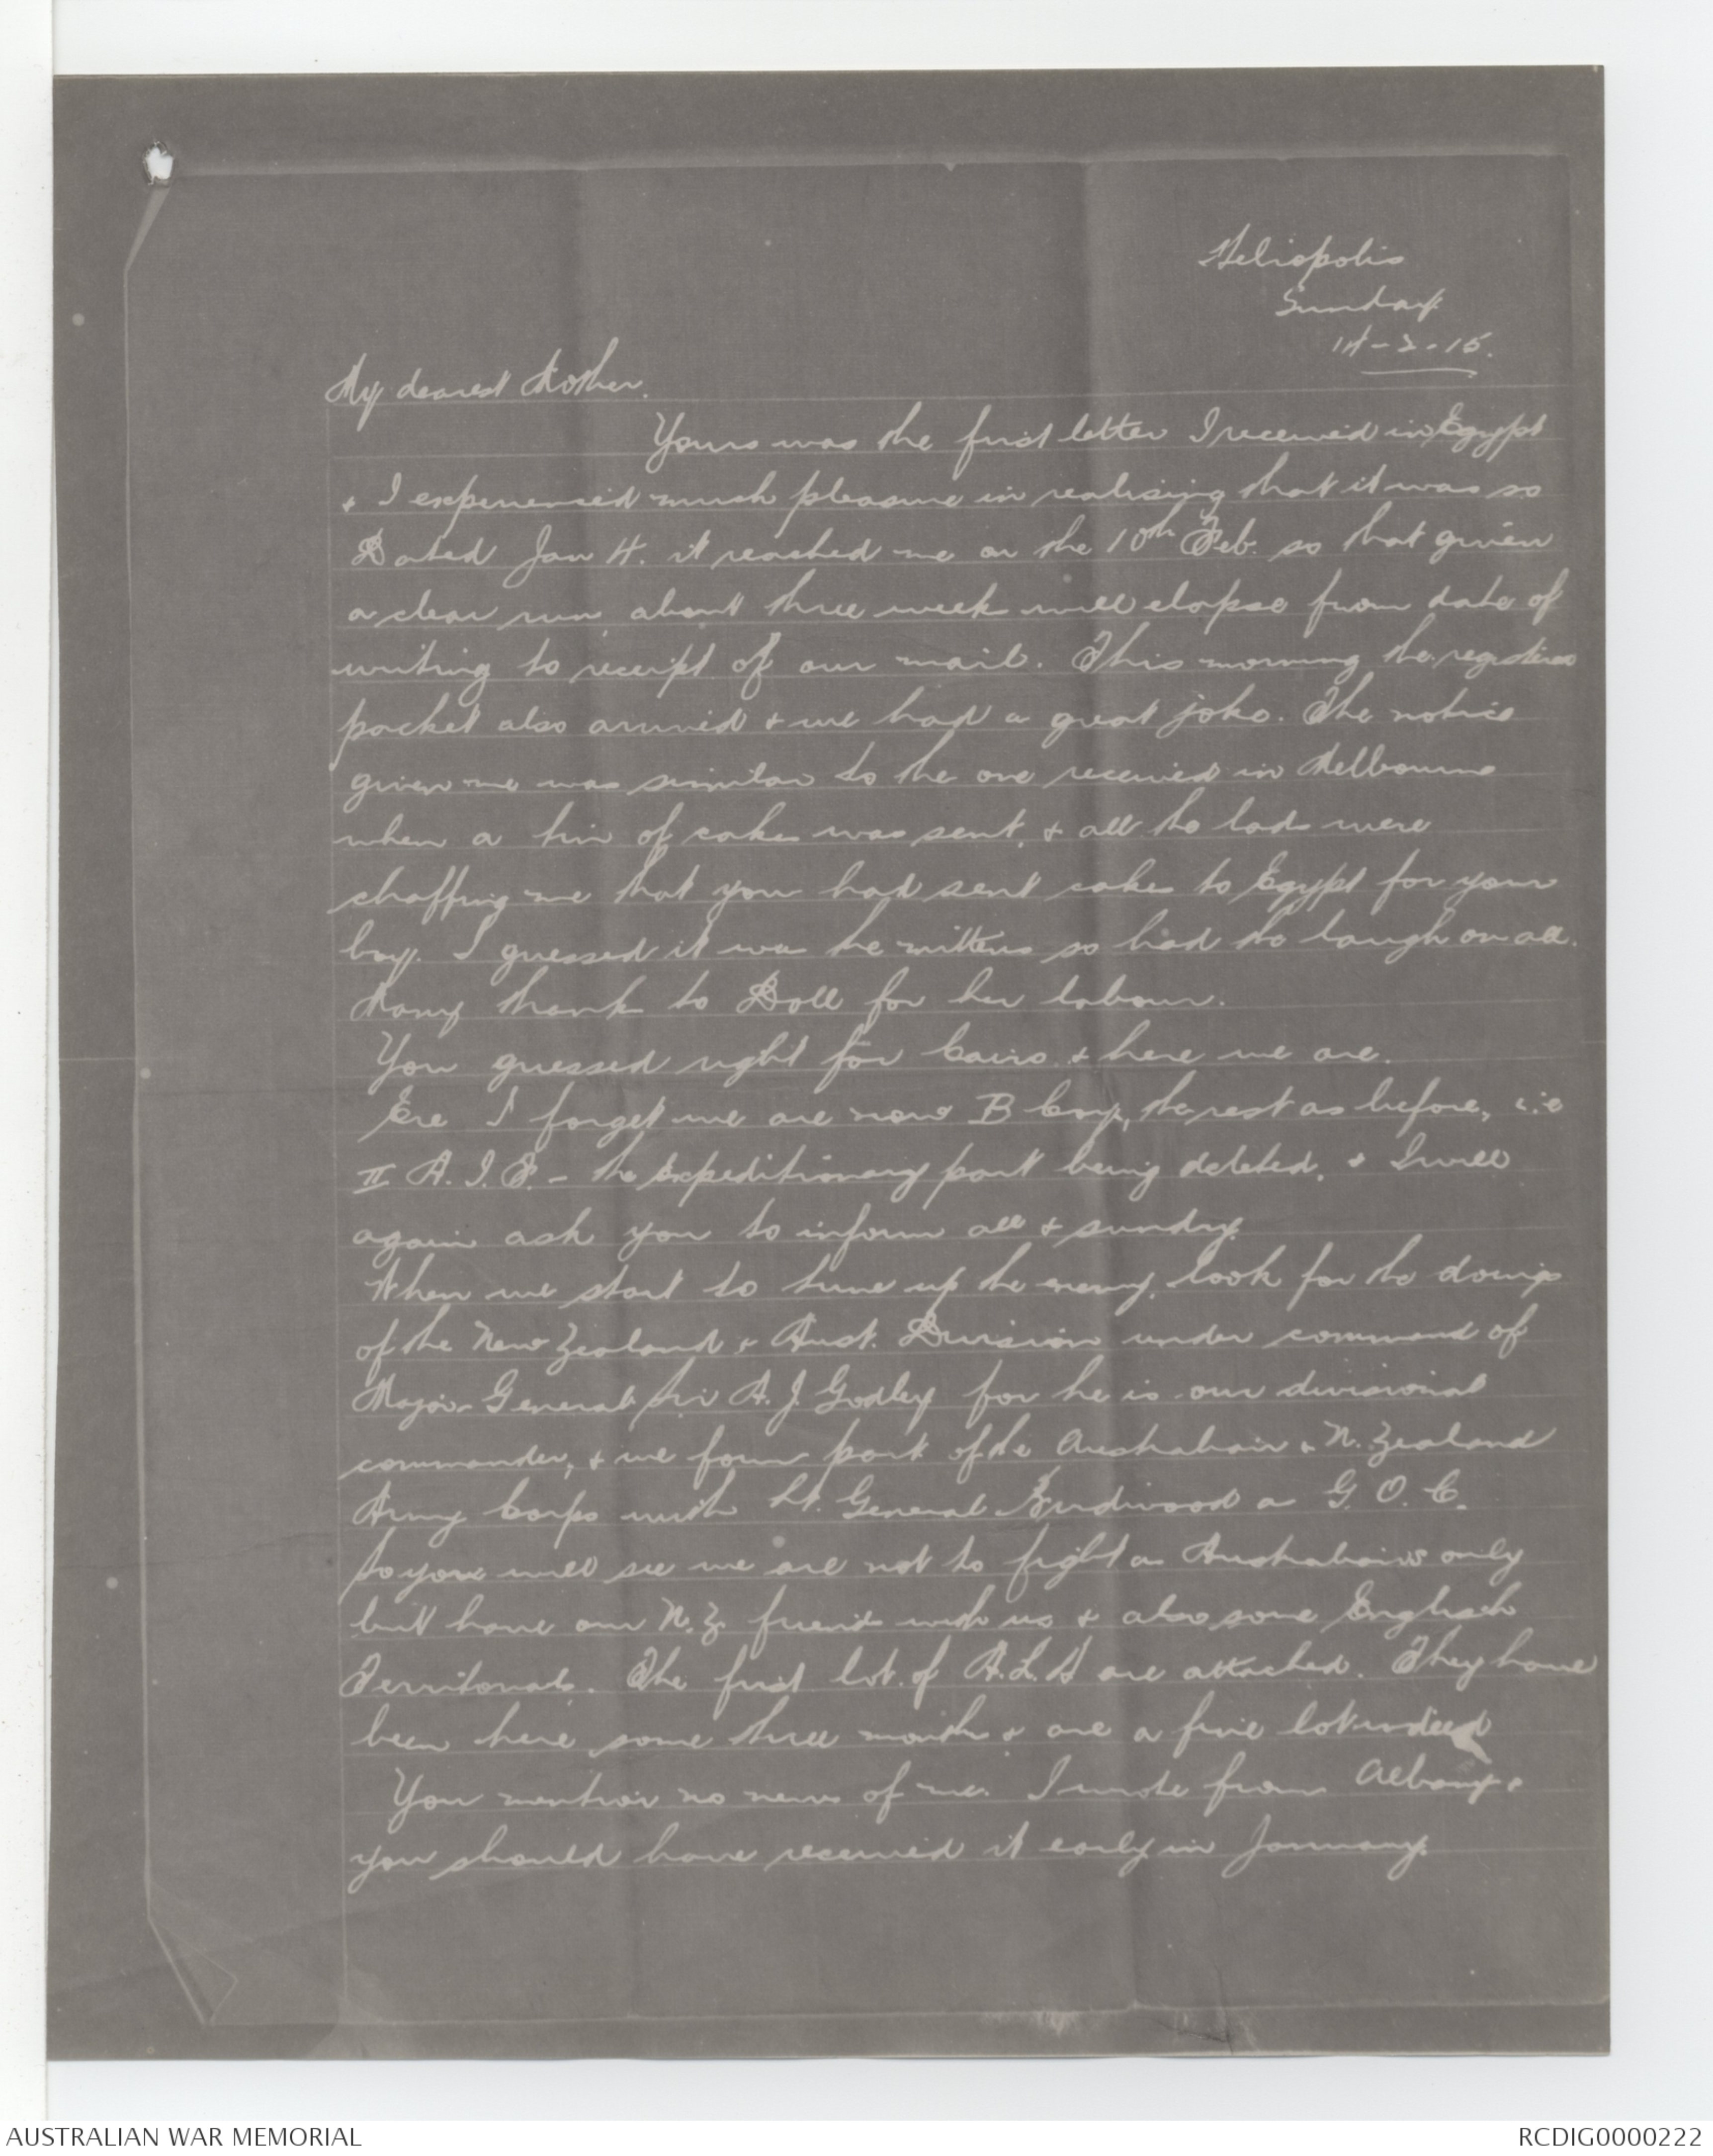 Heliopolis
Sunday
14-2-15.
My dearest Mother.
Yours was the first letter I received in Egypt
& I experienced much pleasure in realising that it was so
Dated Jan 4. it reached me on the 10th Feb. so that given
a clear run, about three weeks will elapse from date of
writing to receipt of our mail. This morning the registered
packet also arrived & we had a great joke. The notice
given me was similar to the one received in Melbourne
when a tin of cakes was sent, & all the lads were
chaffing me that you had sent cakes to Egypt for your
boy. I guessed it was the mittens so had the laugh on all.
Many thanks to Doll for her labour.
You guessed right for Cairo & here we are.
Ere I forget we are now B Coy, the rest as before, i.e
II A.I.F. - the Expeditionary part being deleted, & I will
again ask you to inform all & sundry.
When we start to tune up the enemy, look for the doings
of the New Zealand & Aust. Division under command of
Major-General Sir A.J. Godley for he is our divisional
commander, & we form part of the Australian & N. Zealand
Army Corps with Lt. General Birdwood as G.O.C.
So you will see we are not to fight as Australians only
but have our N.Z. friends with us & also some English
Territorials. The first lot of A.L.H are attached. They have
been here some three months & are a fine lot indeed
You mention no news of me. I wrote from Albany &
you should have received it early in January.
AUSTRALIAN WAR MEMORIAL
RCDIG0000222